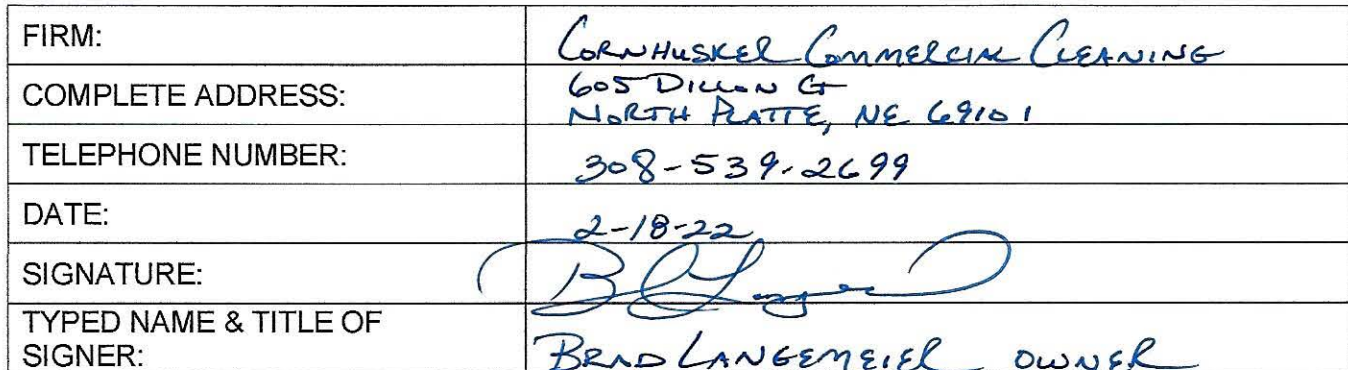 FIRM: CORNHUSKER COMMERCIAL CLEANING
COMPLETE ADDRESS: 605 DILLON CT
NORTH PLATTE, NE 69101
TELEPHONE NUMBER: 308-539-2699
DATE: 2-18-22
SIGNATURE:
TYPED NAME & TITLE OF
SIGNER: BRAD LANGEMEIER OWNER